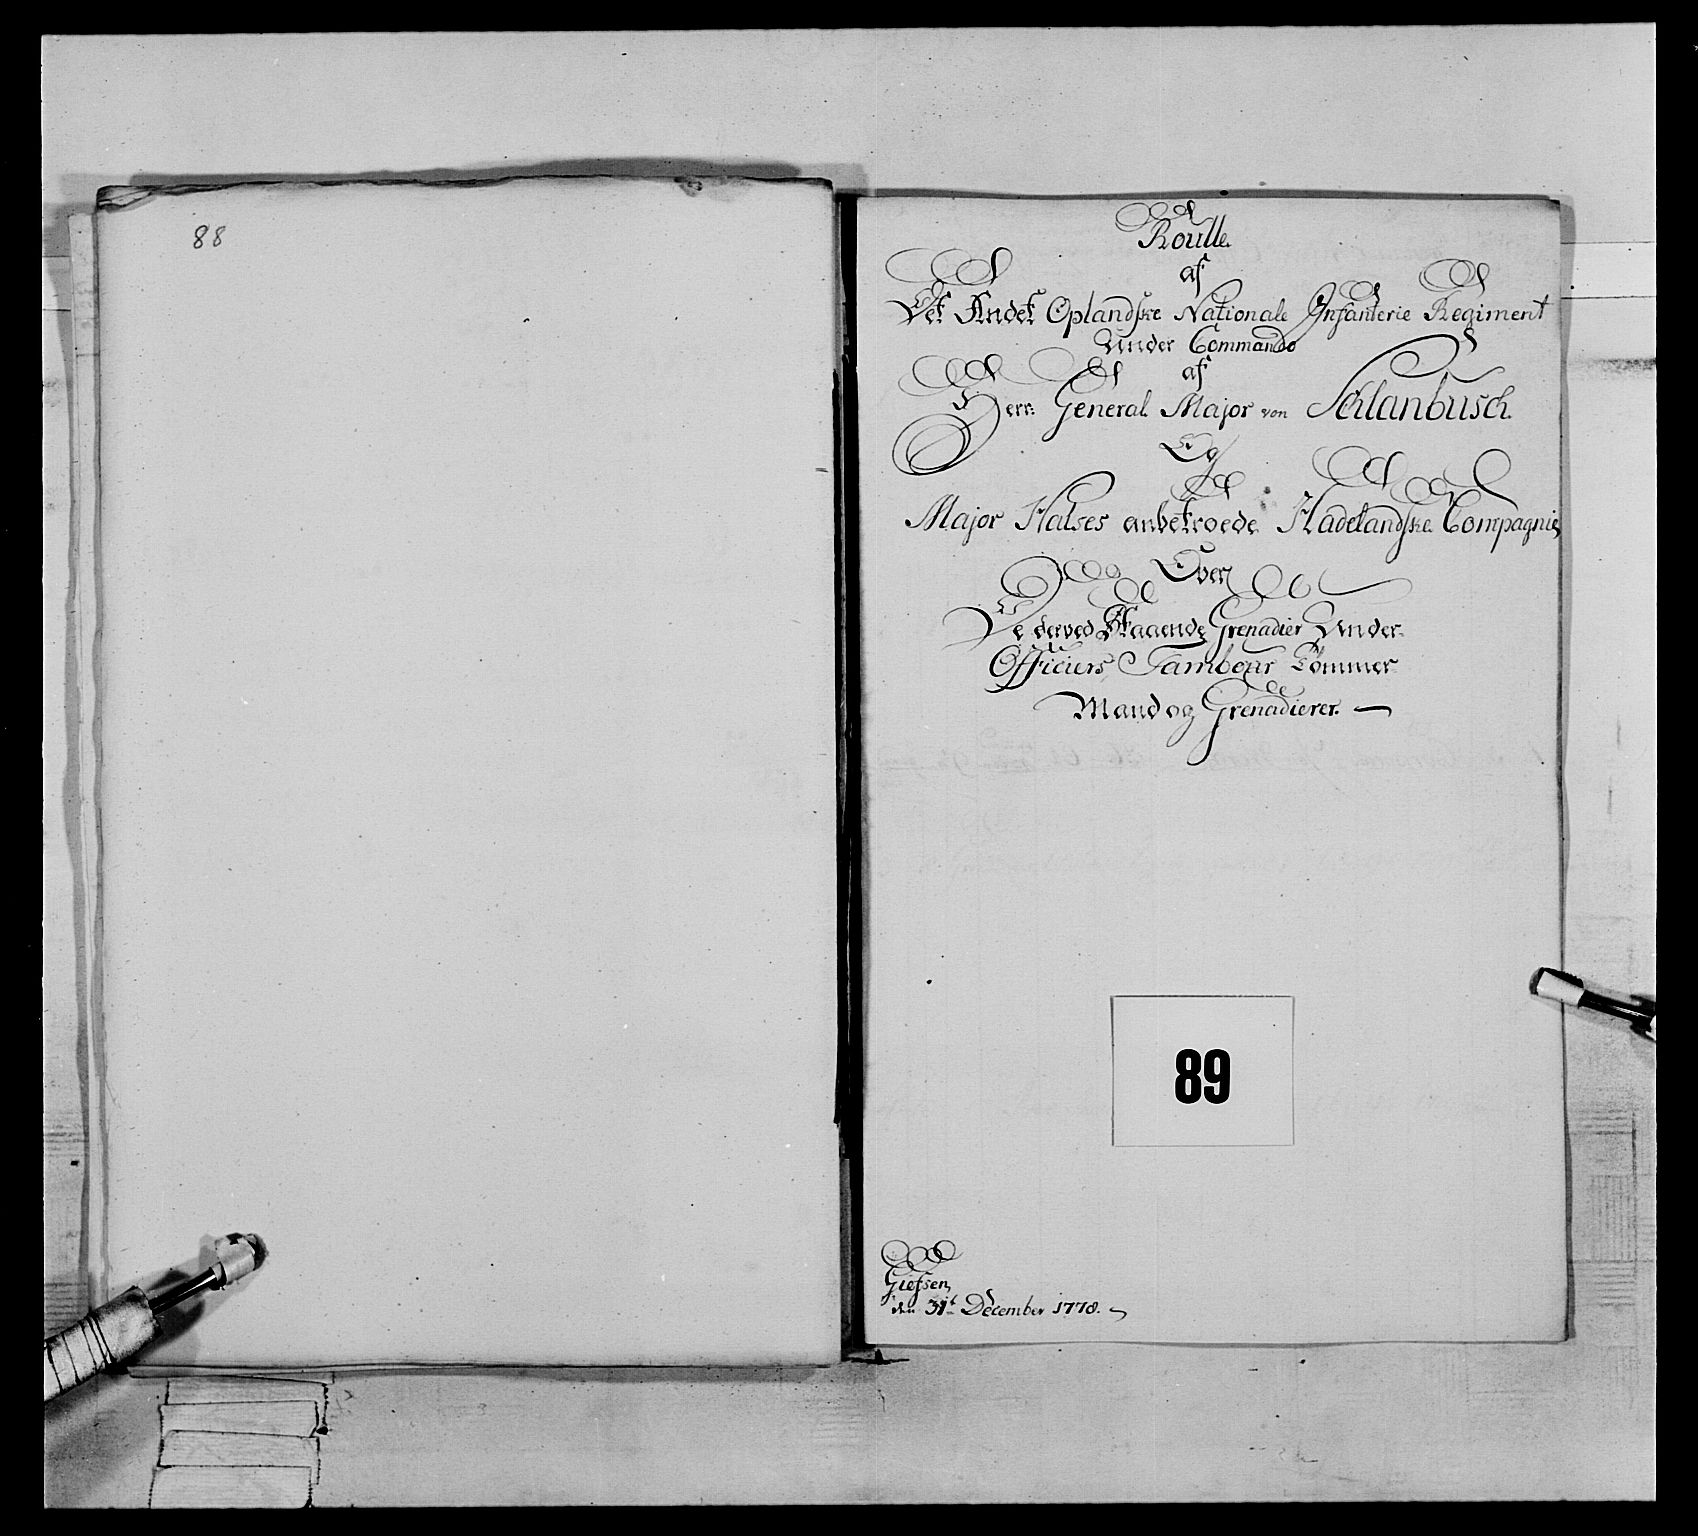 88
Roulle
af
Det Andet Oplandske Nationale Infanterie Regiment
Under Commando
af
Herr General Major von Schlanbusch
Og
Major Halses anbetroede Hadelandske Compagnie
Over
De derved Staaende Grenadier Under
Officiers, Tambour Tömmer
Mand og Grenadierer.
89
Giefsen
den 31t December 1778.